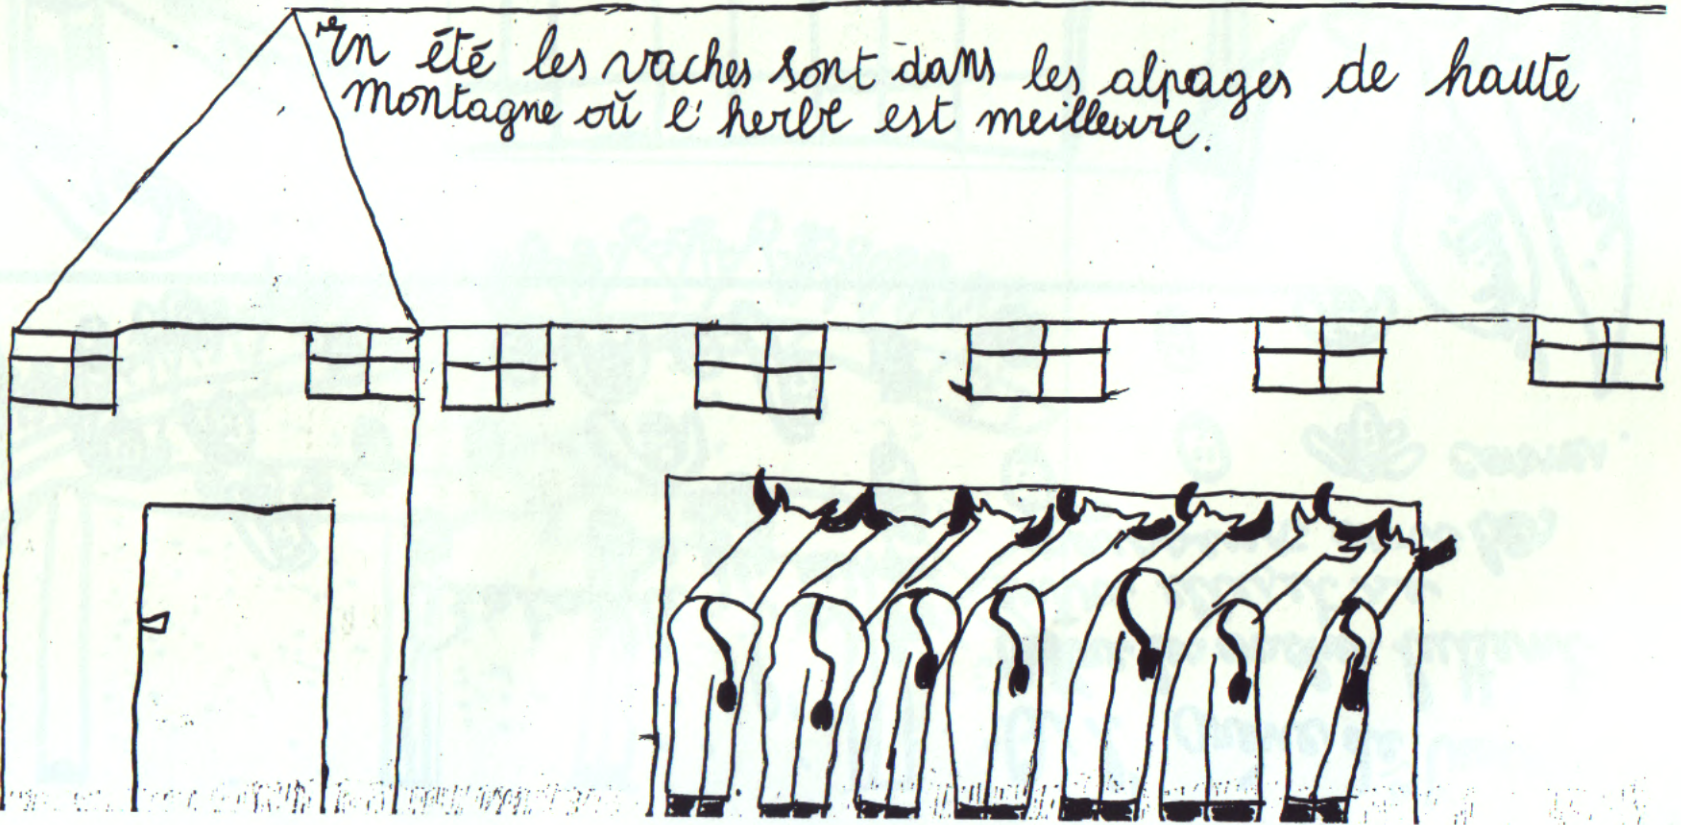 En été les vaches sont dans les alpages de haute
montagne où l'herbe est meilleure.